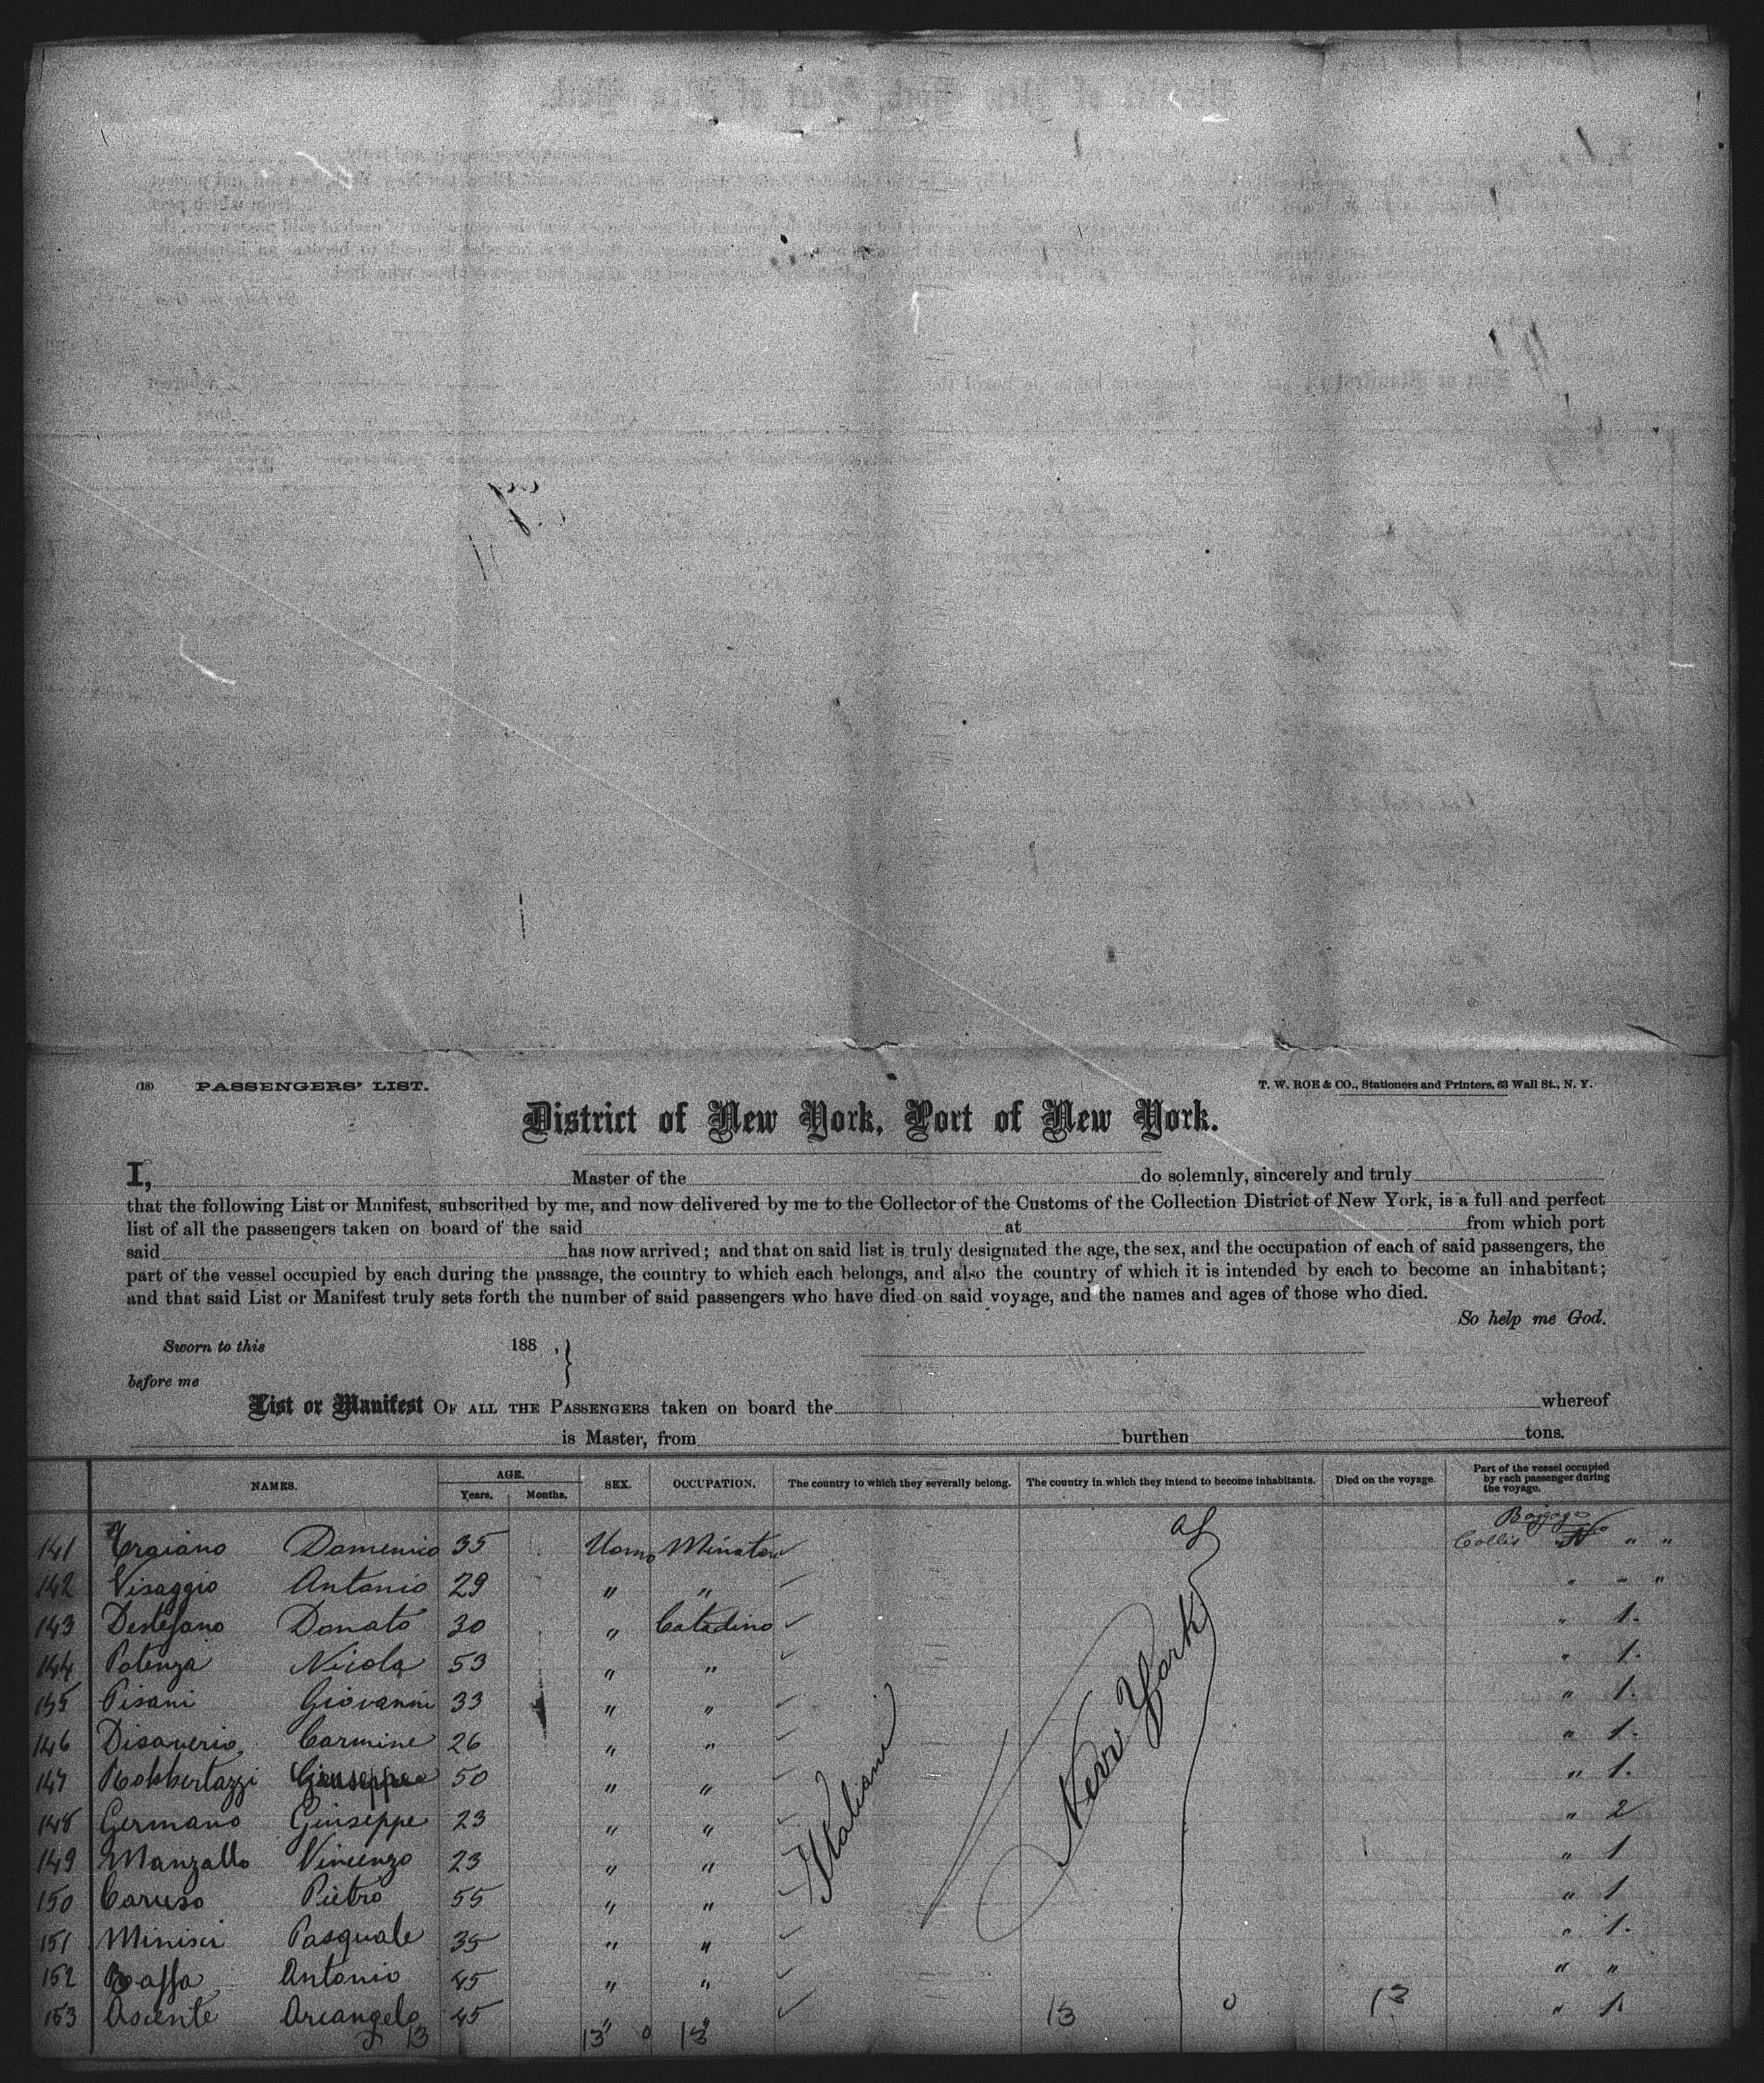 (18) PASSENGERS' LIST. T. W. ROE & CO., Stationers and Printers, 63 Wall St., N. Y.
District of New York, Port of New York.
I, Master of the do solemnly, sincerely and truly
that the following List or Manifest, subscribed by me, and now delivered by me to the Collector of the Customs of the Collection District of New York, is a full and perfect
list of all the passengers taken on board of the said at from which port
said has now arrived; and that on said list is truly designated the age, the sex, and the occupation of each of said passengers, the
part of the vessel occupied by each during the passage, the country to which each belongs, and also the country of which it is intended by each to become an inhabitant;
and that said List or Manifest truly sets forth the number of said passengers who have died on said voyage, and the names and ages of those who died.
So help me God.
Sworn to this 188 ,
before me
List or Manifest OF ALL THE PASSENGERS taken on board the whereof
is Master, from burthen tons.
NAMES. AGE. Years. Months. SEX. OCCUPATION. The country to which they severally belong. The country in which they intend to become inhabitants. Died on the voyage. Part of the vessel occupied by each passenger during the voyage.
Baggage
141 Troiano Domenico 35 Uomo Minatore Collis No " "
142 Visaggio Antonio 29 " " " - "
143 Destefano Donato 30 " Catadino " 1.
144 Potenza Nicola 53 " " " 1.
145 Pisani Giovanni 33 " " " 1.
146 Disaverio Carmine 26 " " " 1.
147 Robbertazzi Giuseppe 50 " " " 1.
148 Germano Giuseppe 23 " " " 2
149 Manzallo Vincenzo 23 " " " 1
150 Caruso Pietro 55 " " " 1
151 Minisci Pasquale 35 " " " 1.
152 Antonio 45 " " " "
153 Asciente Arcangelo 45 " " 13 0 13 " 1.
13 13 0 13
Italiani
New York